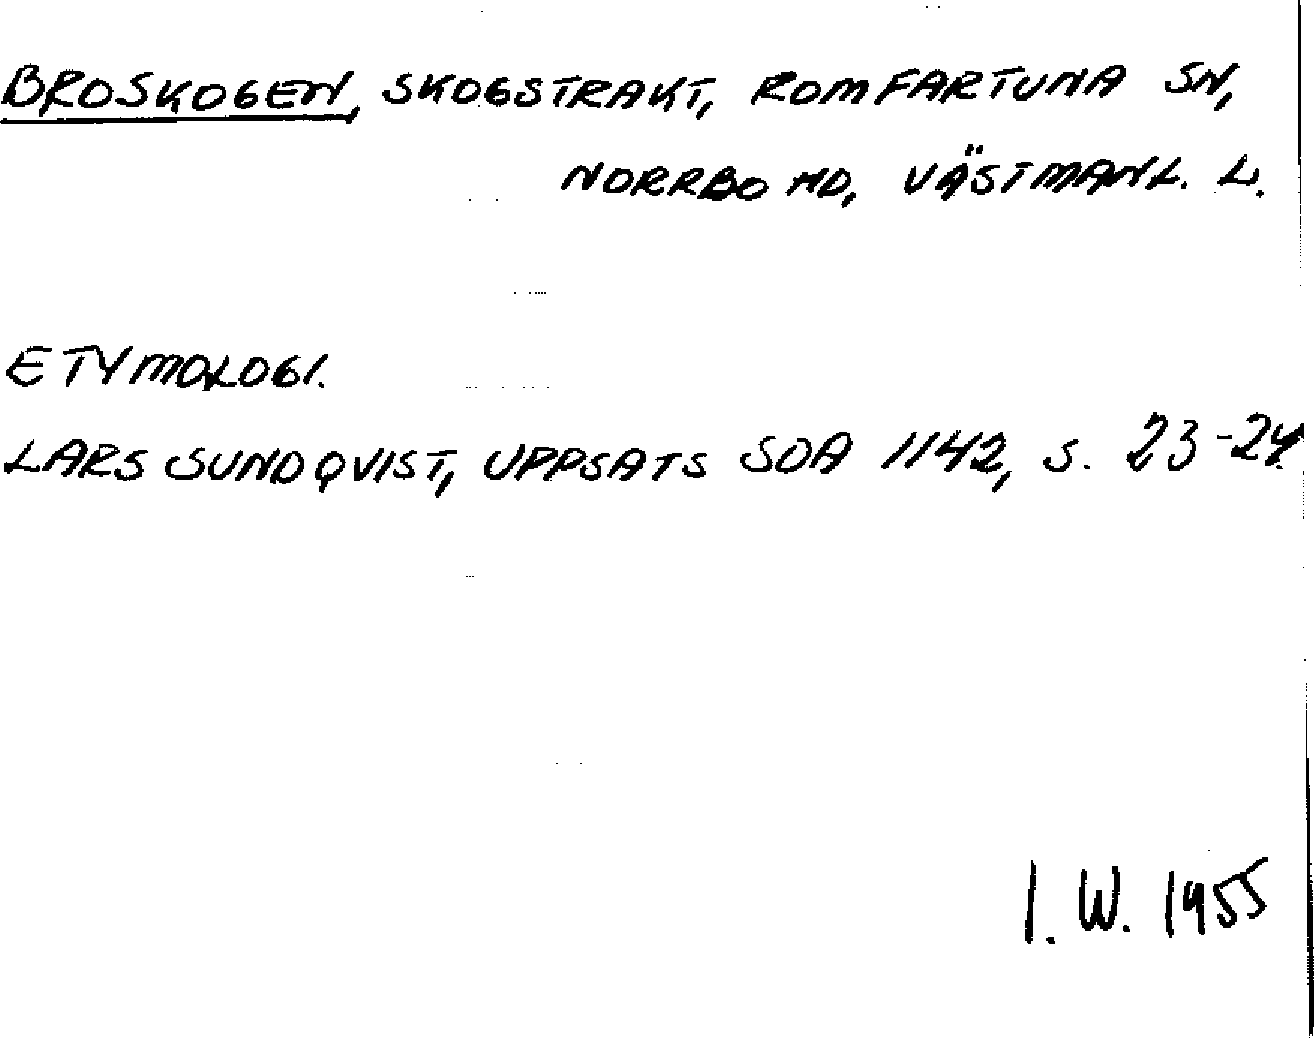 BROSKOGEN, SKOGSTRAKT, ROMFARTUNA SN,
NORRBO HD, VÄSTMANL. L.
ETYMOLOGI.
LARS SUNDQVIST, UPPSATS SOA 1142, S. 23-24.
I. W. 1955